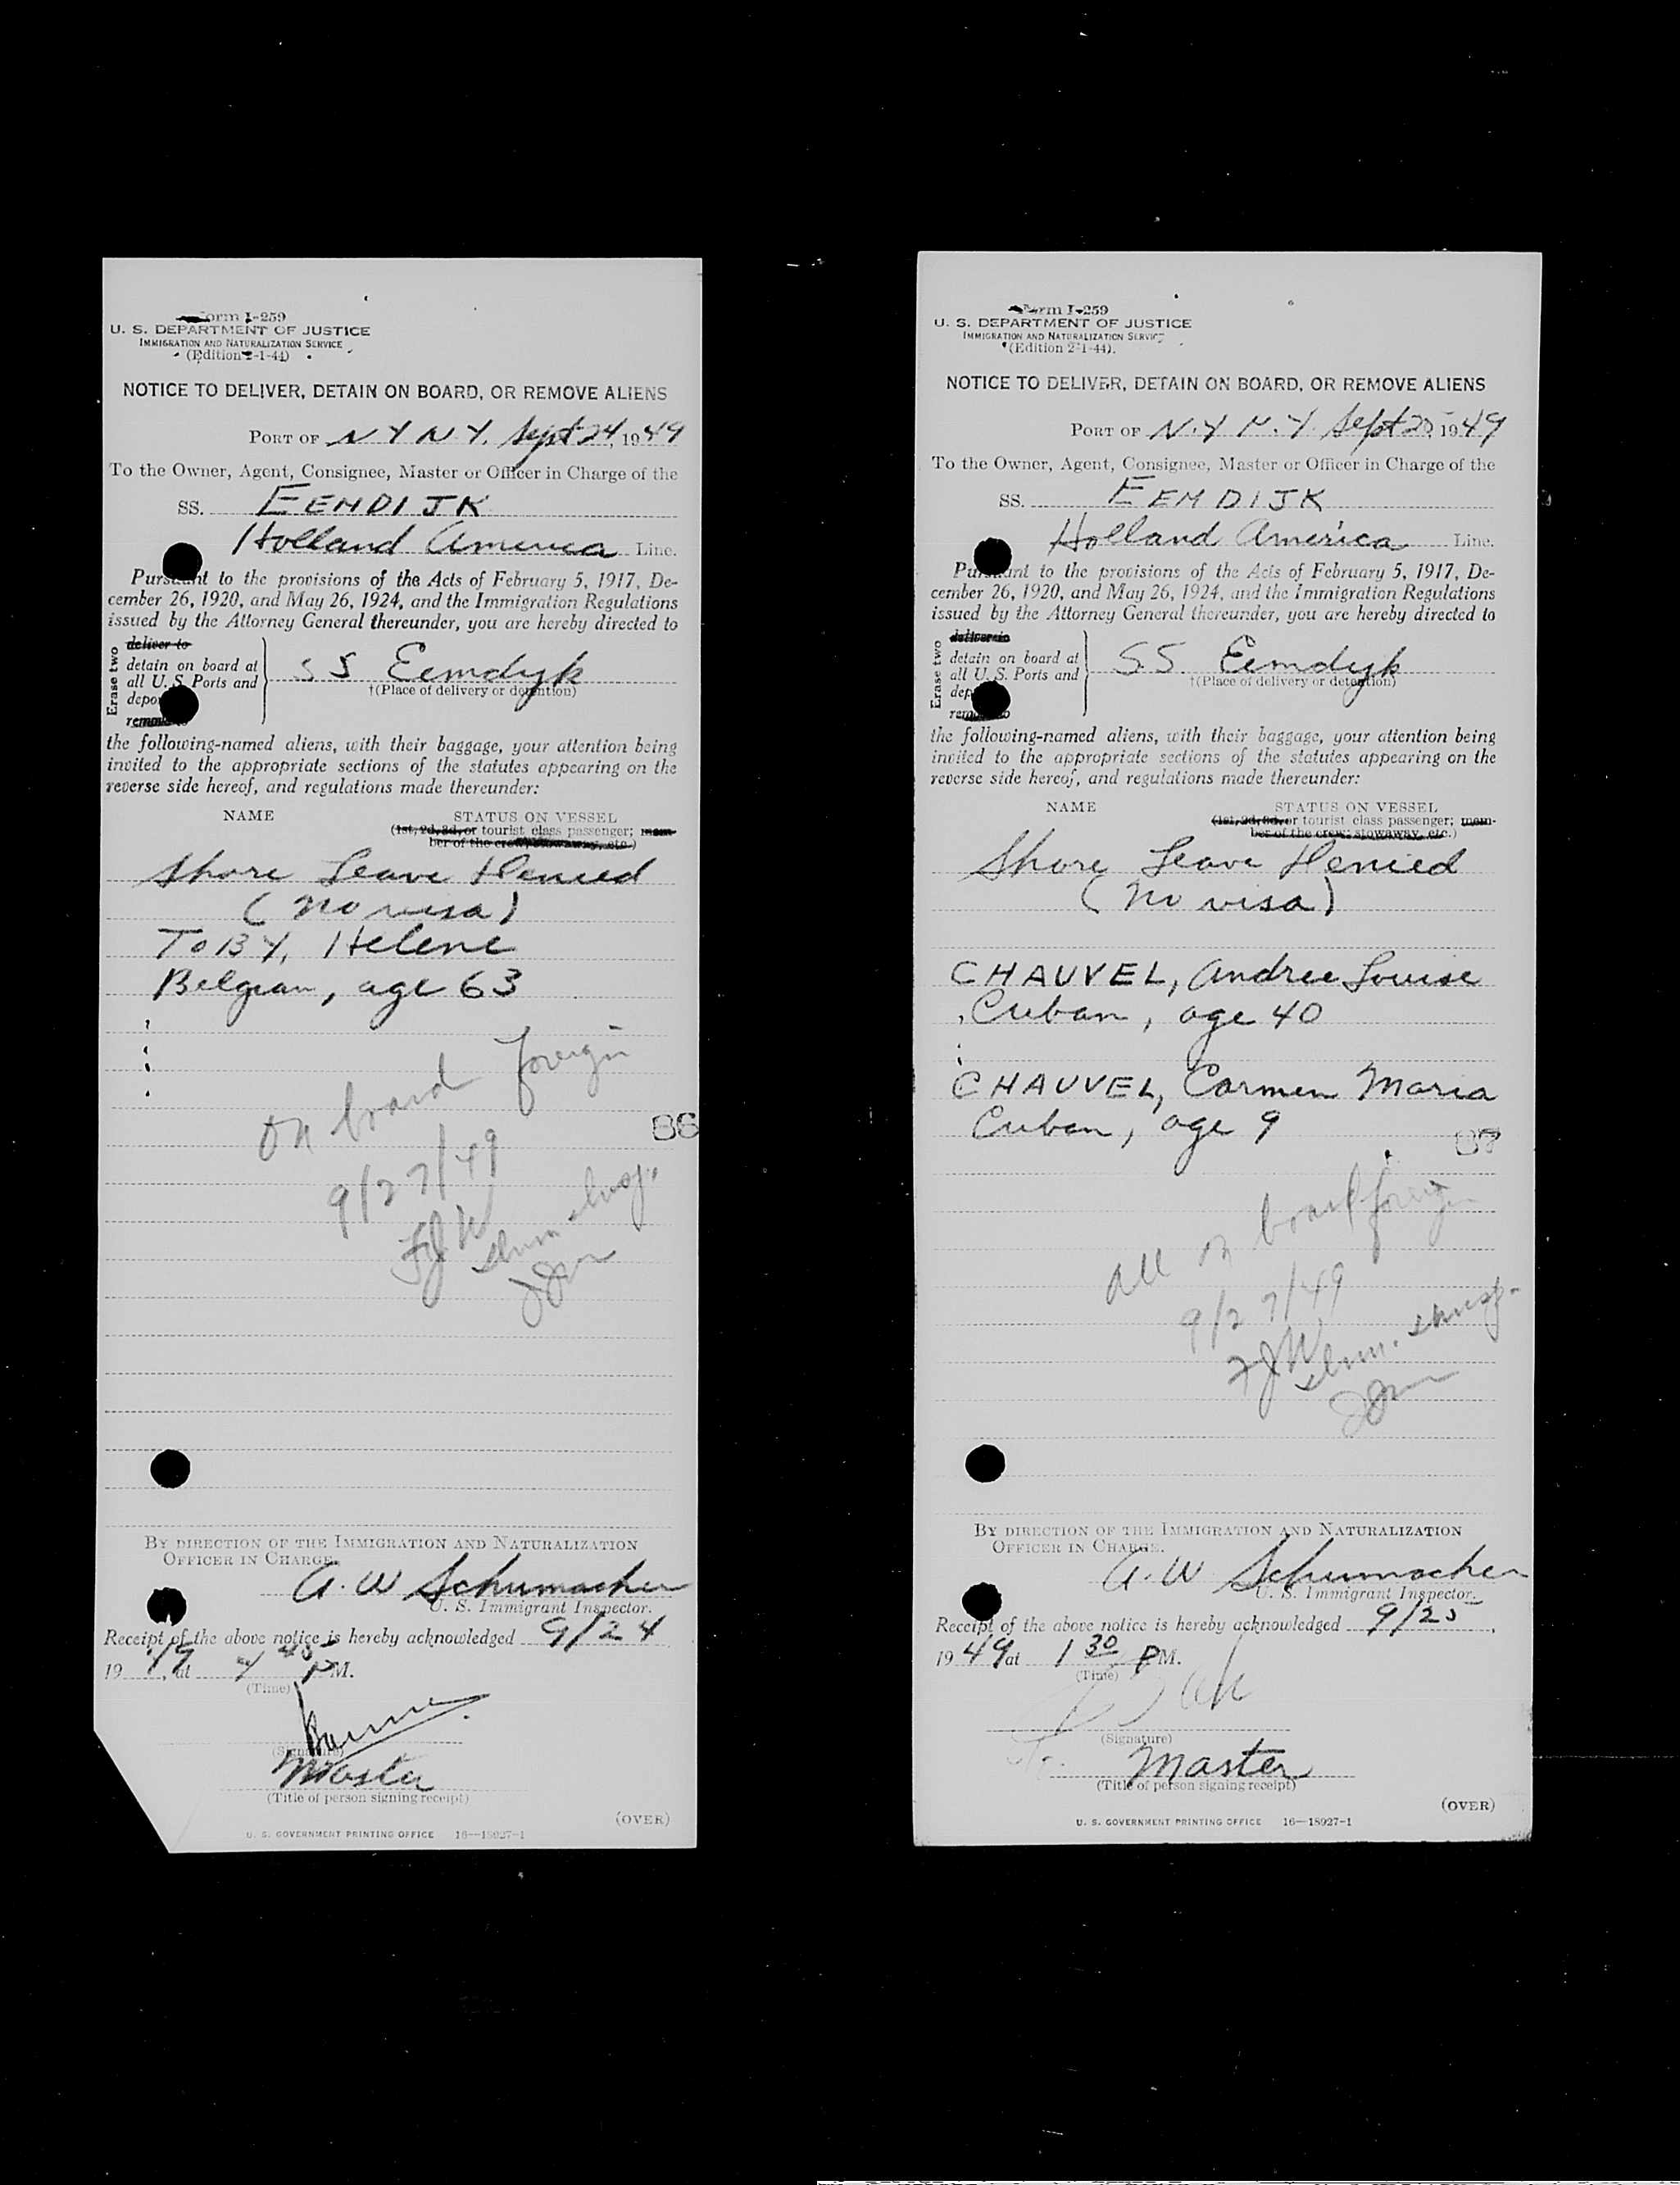 Form I-259
U. S. DEPARTMENT OF JUSTICE
IMMIGRATION AND NATURALIZATION SERVICE
(Edition 2-1-44)
NOTICE TO DELIVER, DETAIN ON BOARD, OR REMOVE ALIENS
PORT OF N Y N. Y. Sept 24, 1949
To the Owner, Agent, Consignee, Master or Officer in Charge of the
SS. EEMDIJK
Holland America Line.
Pursuant to the provisions of the Acts of February 5, 1917, De-
cember 26, 1920, and May 26, 1924, and the Immigration Regulations
issued by the Attorney General thereunder, you are hereby directed to
Erase two
deliver to
detain on board at
all U. S. Ports and
deport
remove to
SS Eemdyk
†(Place of delivery or detention)
the following-named aliens, with their baggage, your attention being
invited to the appropriate sections of the statutes appearing on the
reverse side hereof, and regulations made thereunder:
NAME STATUS ON VESSEL
(1st, 2d, 3d, or tourist class passenger; mem-
ber of the crew; stowaway, etc.)
Shore Leave Denied
(No visa)
TOBY, Helene
Belgian, age 63
on board foreign
86
9/27/49
FJW
BY DIRECTION OF THE IMMIGRATION AND NATURALIZATION
OFFICER IN CHARGE.
A. W Schumacher
U. S. Immigrant Inspector.
Receipt of the above notice is hereby acknowledged 9/24
1949, at 4 45 PM.
(Time)
(Signature)
Master
(Title of person signing receipt)
(OVER)
U. S. GOVERNMENT PRINTING OFFICE 16—18927-1
Form I-259
U. S. DEPARTMENT OF JUSTICE
IMMIGRATION AND NATURALIZATION SERVICE
(Edition 2-1-44).
NOTICE TO DELIVER, DETAIN ON BOARD, OR REMOVE ALIENS
PORT OF N. Y N. Y. Sept 25, 1949
To the Owner, Agent, Consignee, Master or Officer in Charge of the
SS. EEMDIJK
Holland America Line.
Pursuant to the provisions of the Acts of February 5, 1917, De-
cember 26, 1920, and May 26, 1924, and the Immigration Regulations
issued by the Attorney General thereunder, you are hereby directed to
Erase two
deliver to
detain on board at
all U. S. Ports and
deport
remove to
SS. Eemdyk
†(Place of delivery or detention)
the following-named aliens, with their baggage, your attention being
invited to the appropriate sections of the statutes appearing on the
reverse side hereof, and regulations made thereunder:
NAME STATUS ON VESSEL
(1st, 2d, 3d, or tourist class passenger; mem-
ber of the crew; stowaway, etc.)
Shore Leave Denied
(No visa)
CHAUVEL, Andree Louise
Cuban, age 40
CHAUVEL, Carmen Maria
Cuban, age 9
87
all on board foreign
9/27/49
FJW
BY DIRECTION OF THE IMMIGRATION AND NATURALIZATION
OFFICER IN CHARGE.
A. W Schumacher
U. S. Immigrant Inspector.
Receipt of the above notice is hereby acknowledged 9/25,
1949 at 1 30 PM.
(Time)
(Signature)
Master
(Title of person signing receipt)
(OVER)
U. S. GOVERNMENT PRINTING OFFICE 16—18927-1